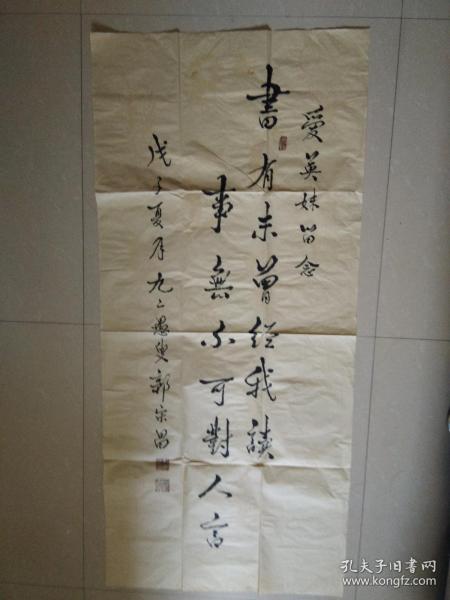 愛英妹留念
書有未曾經我讀
事無不可對人言
戊子夏月九二愚叟郭宗昌
孔夫子旧书网
www.kongfz.com